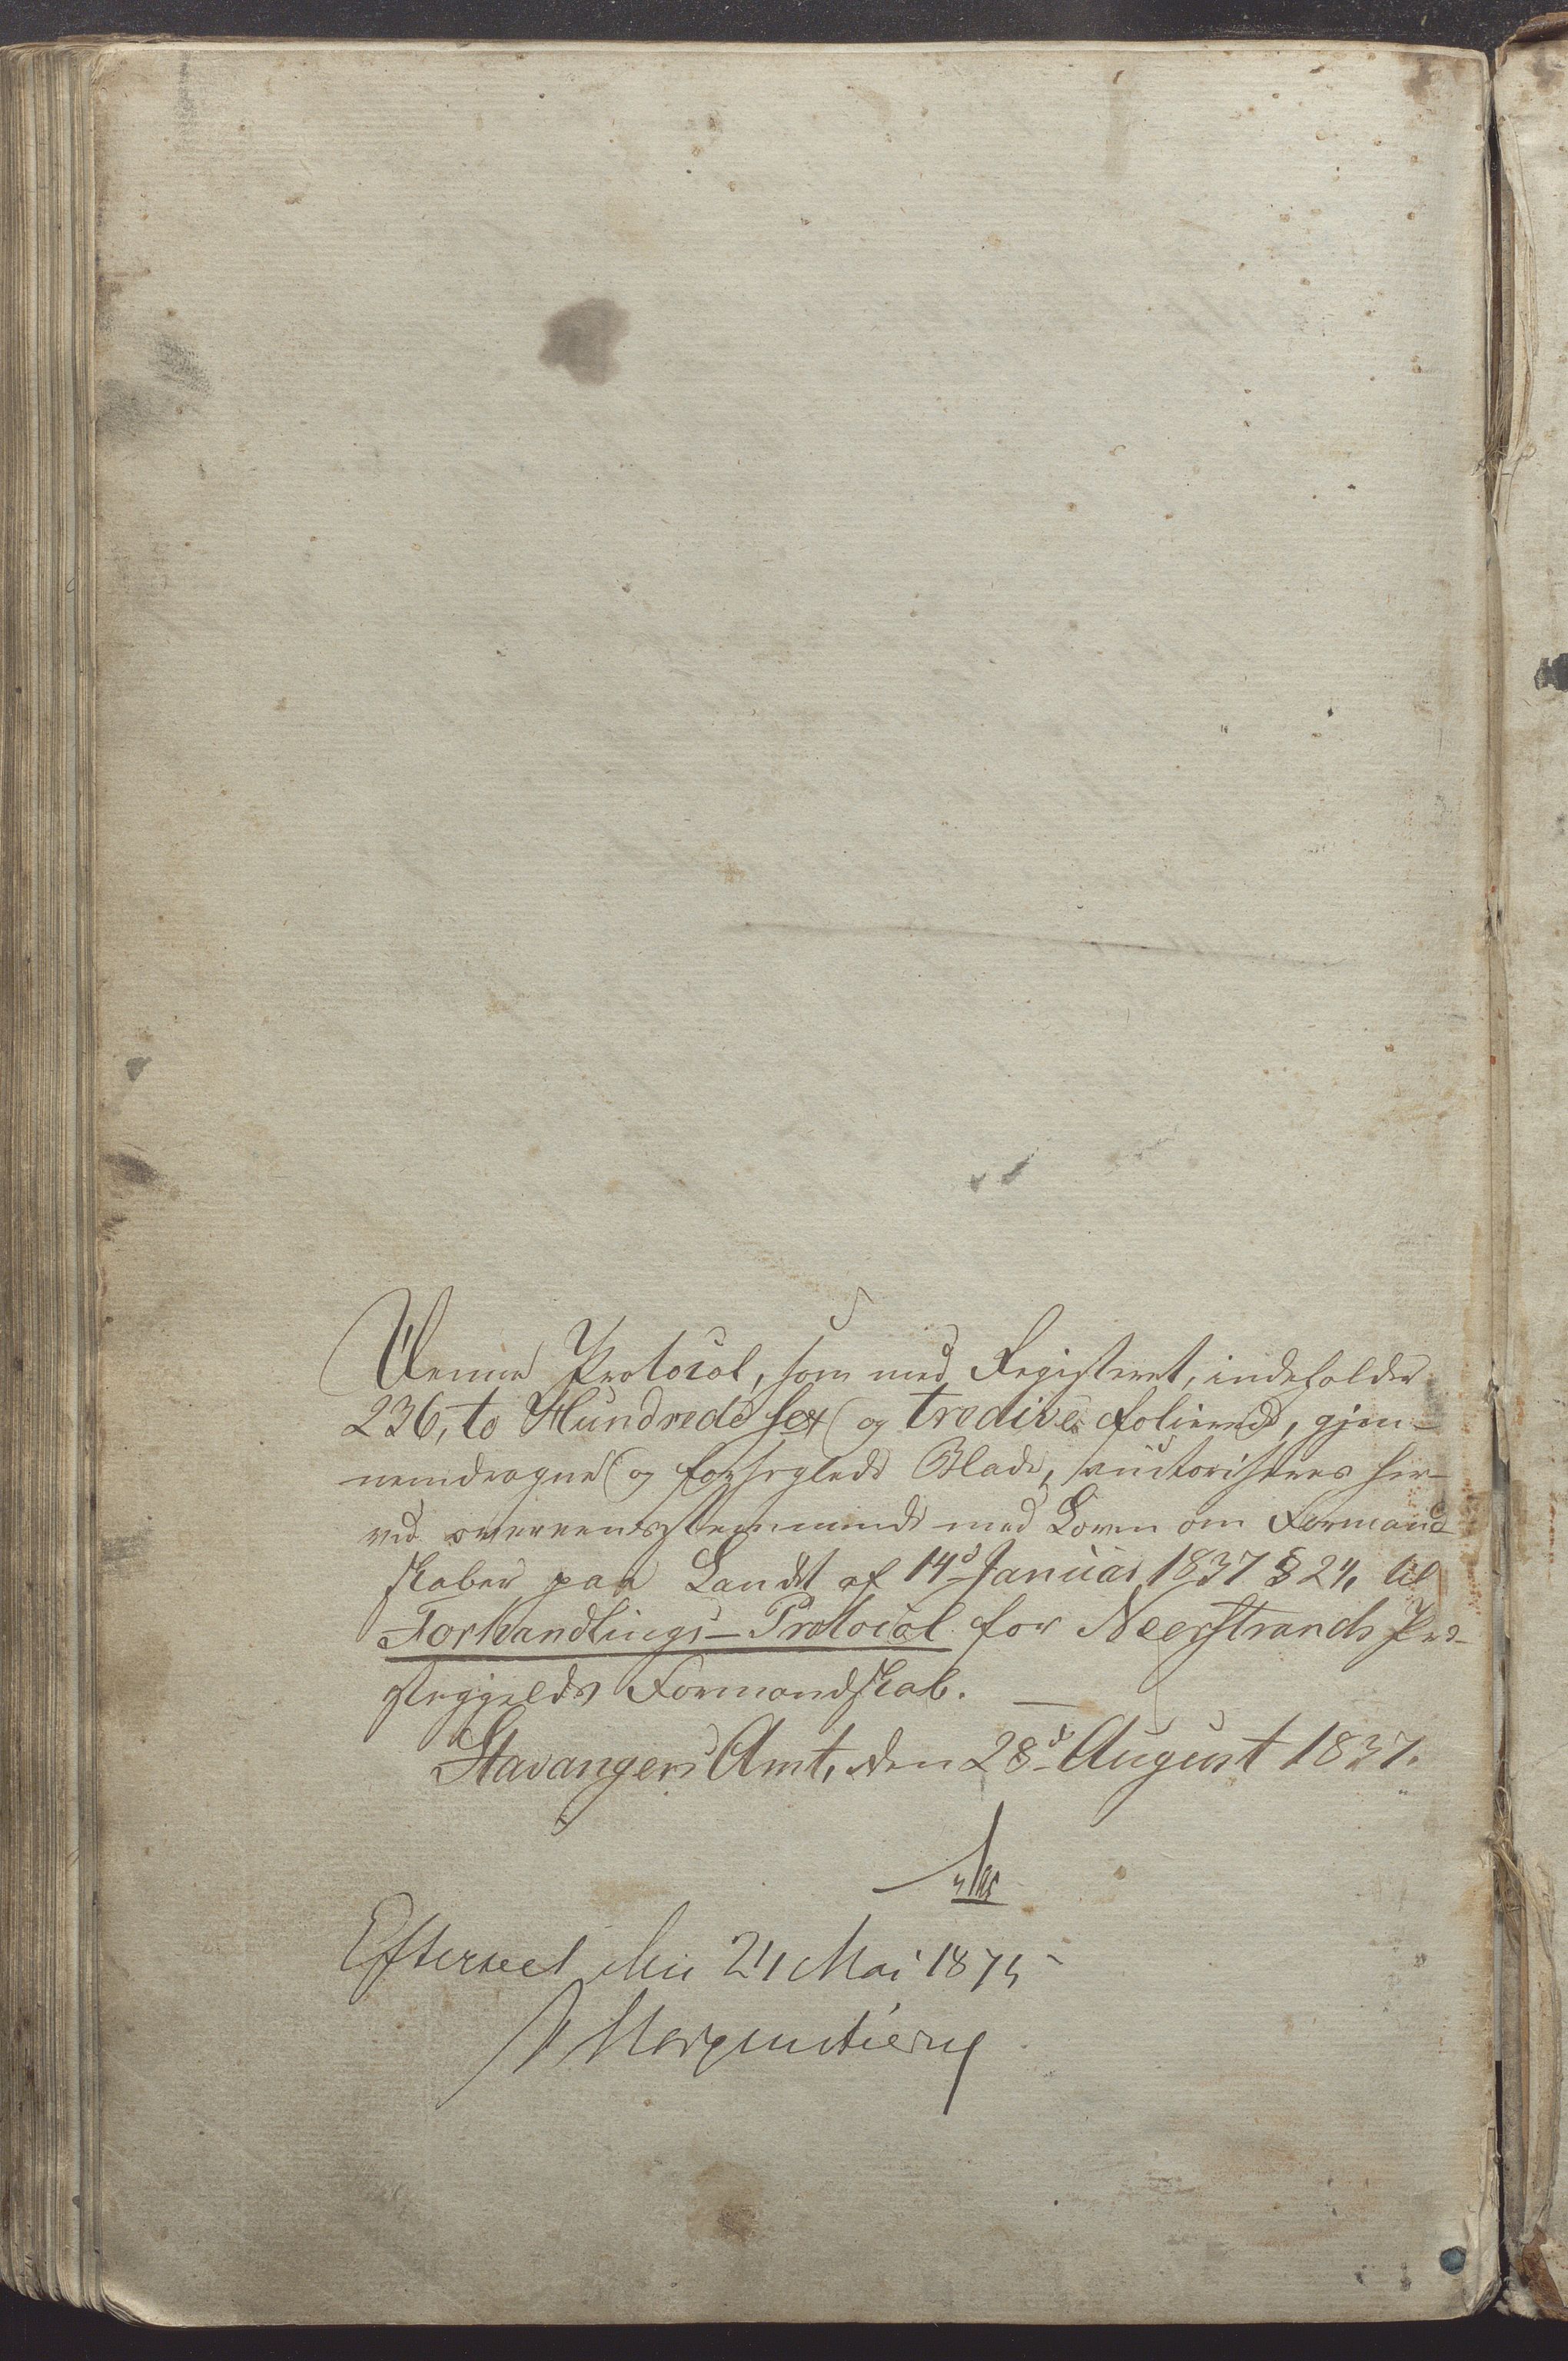 Denne Protocol, som med Registeret, indeholder
236, to Hundrede sex og tredive folierede, gjen-
nemdragne og forseglede Blade, autoriseres her-
ved overeensstemmende med Loven om Formand-
skaber paa Landet af 14de Januar 1837 § 24, til
Forhandlings-Protocol for Neerstrands Præ-
stegjelds Formandskab. —
Stavanger Amt, den 28de August 1837.
Efterseet den 24 Mai 1875